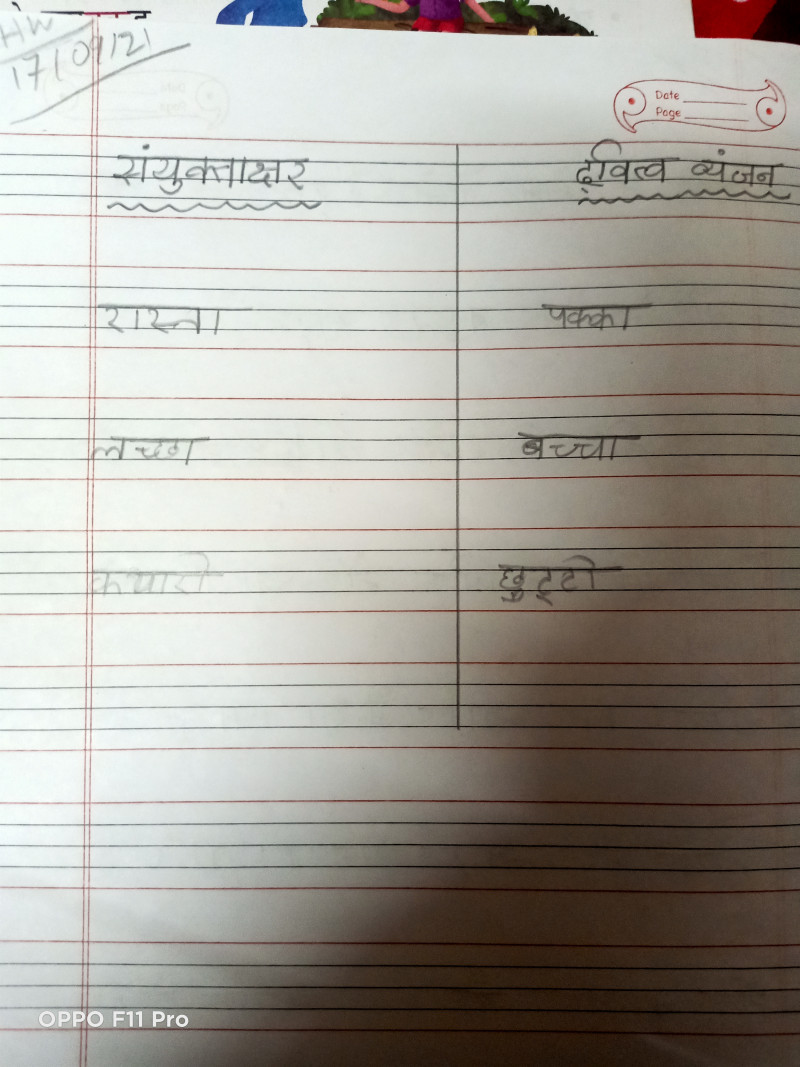 HW
17/09/21
Date
Page
संयुक्ताक्षर द्वित्व व्यंजन
रास्ता पक्का
बच्चा
क्यारी छुट्टी
OPPO F11 Pro